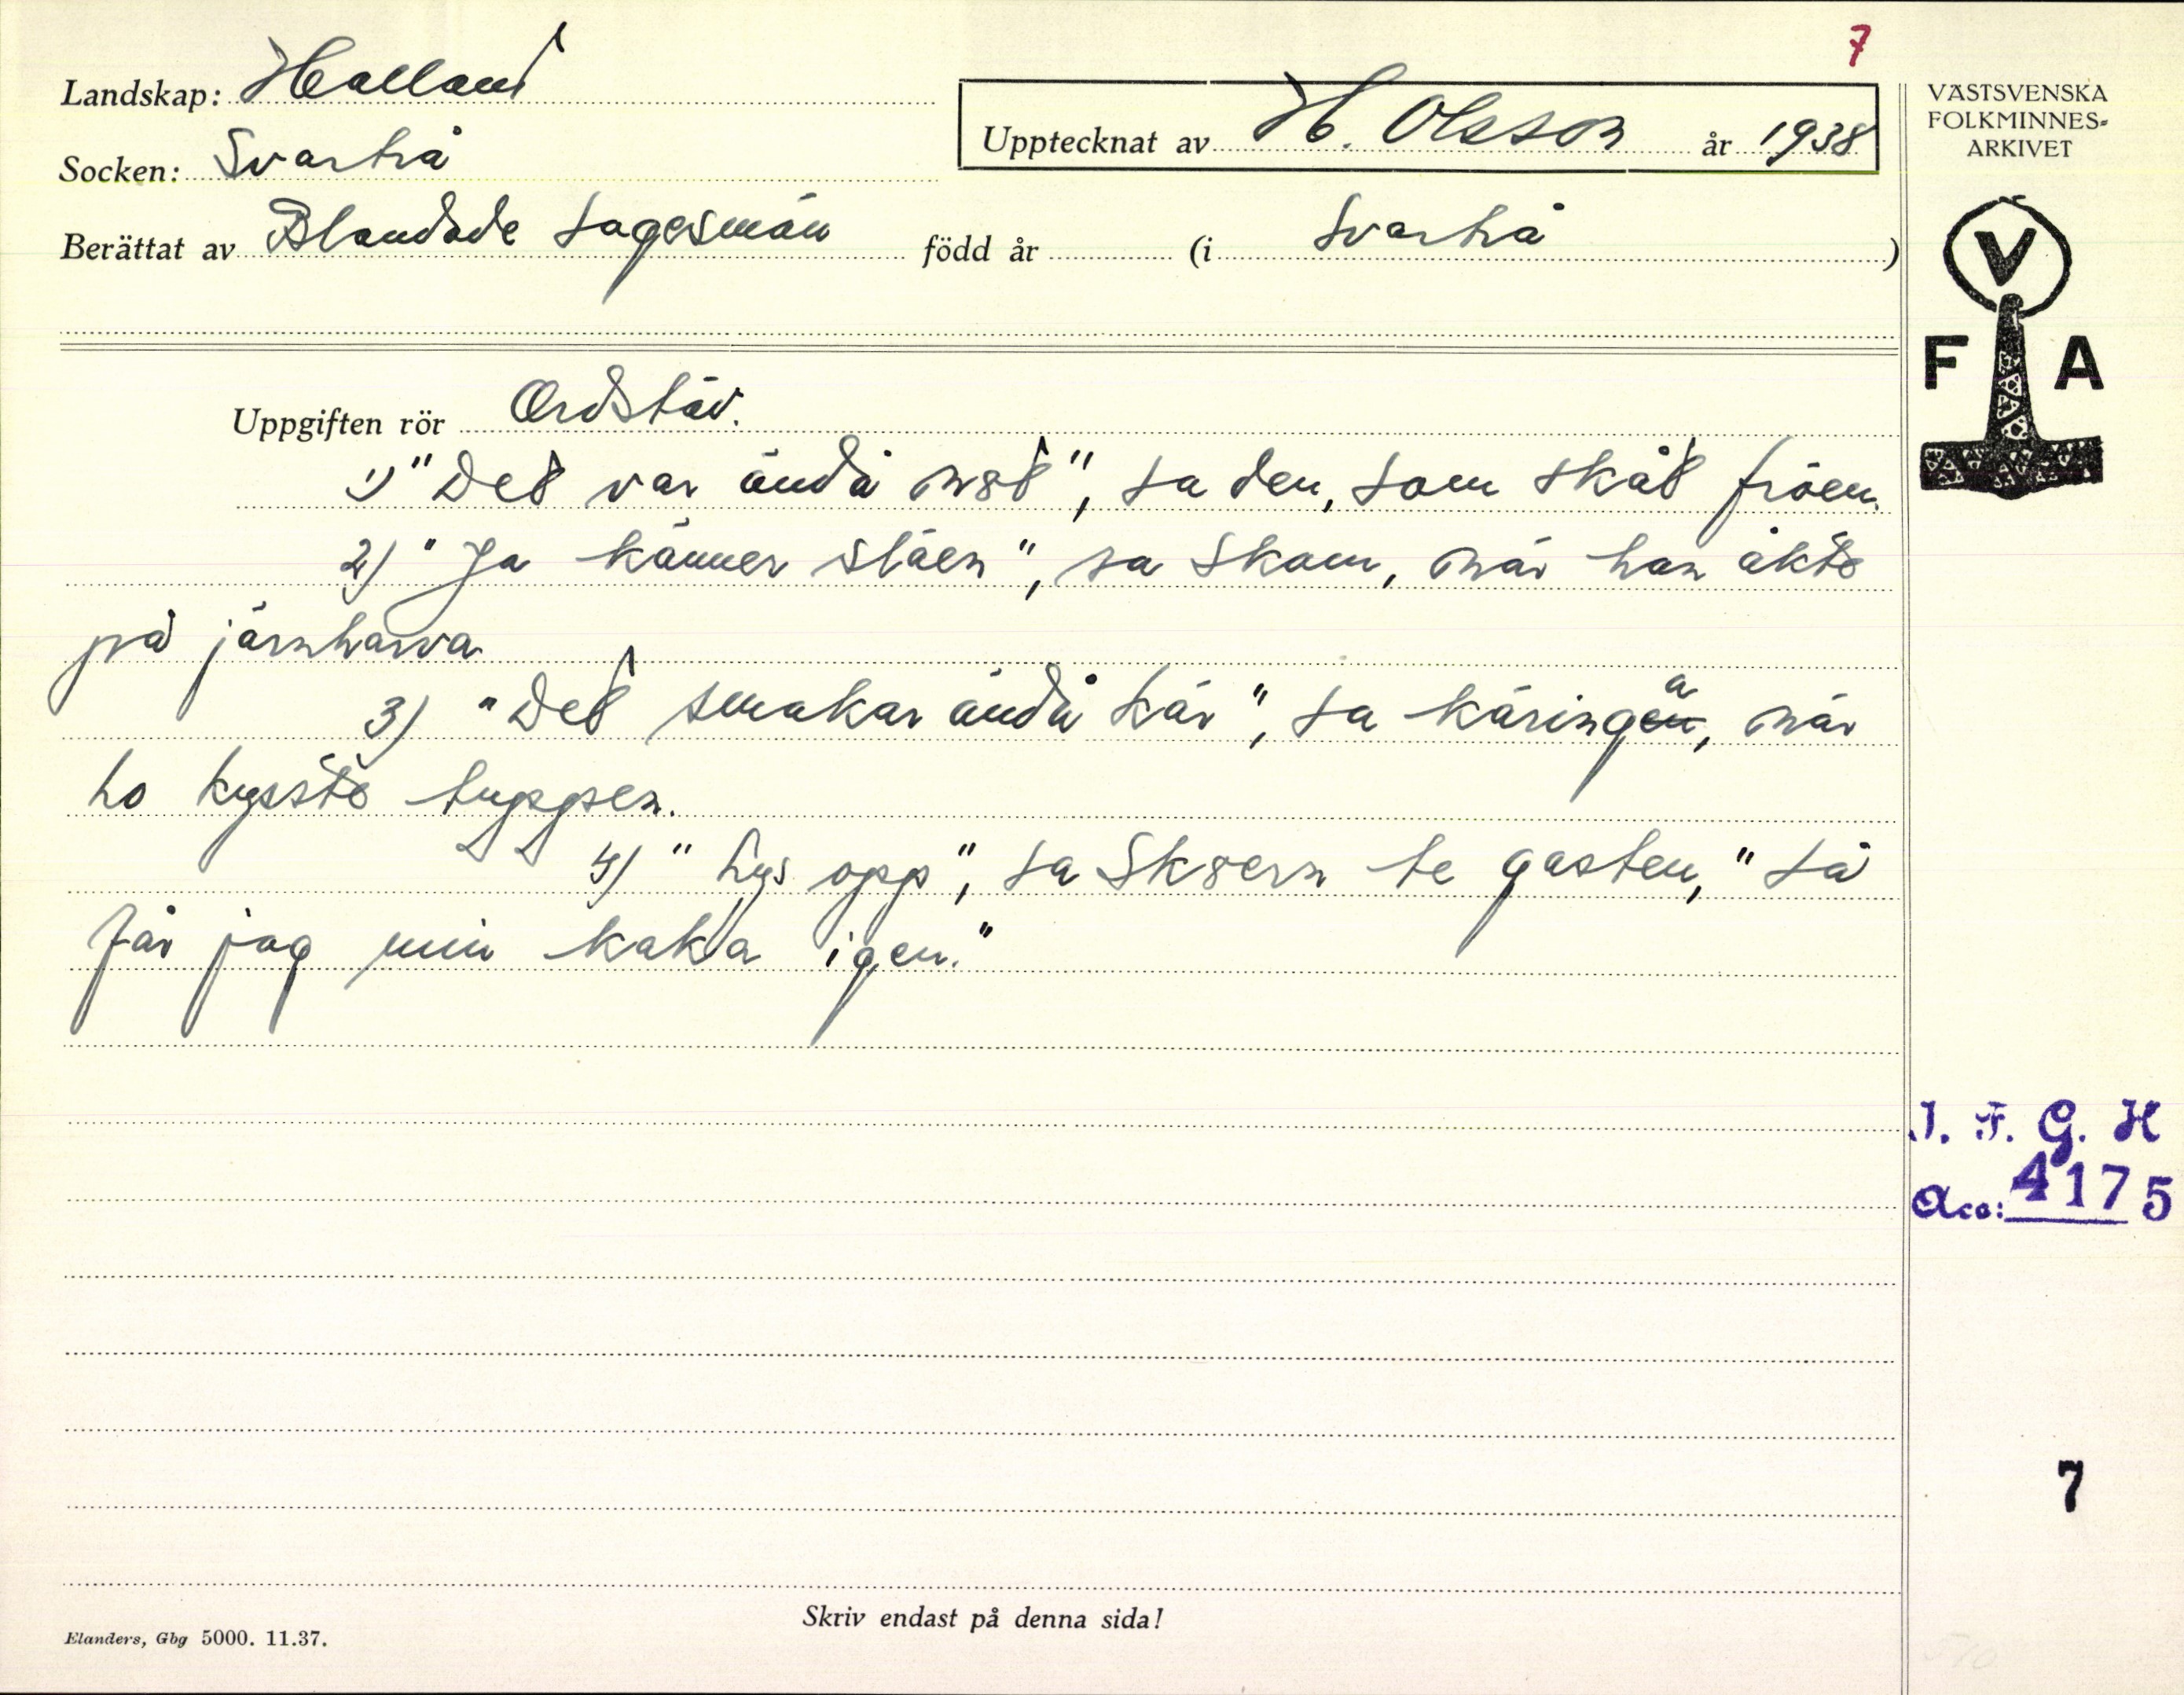 7
Landskap: Halland
Socken: Svartrå
Upptecknat av H. Olsson år 1938
Berättat av Blandade sagesmän född år (i Svartrå)
VÄSTSVENSKA
FOLKMINNES-
ARKIVET
V
F A
Uppgiften rör Ordstäv.
1) "Det var ändå nöt", sa den, som skåt fröen.
2) "Ja känner släen", sa Skam, när han åkte
på järnharva
3) "Det smakar ändå kär", sa käringa, när
ho kysste tuppen.
4) "Lys opp", sa Sköern te gasten, "så
får jag min kaka igen."
I. F. G. H
Acc: 4175
7
Skriv endast på denna sida!
Elanders, Gbg 5000. 11.37.